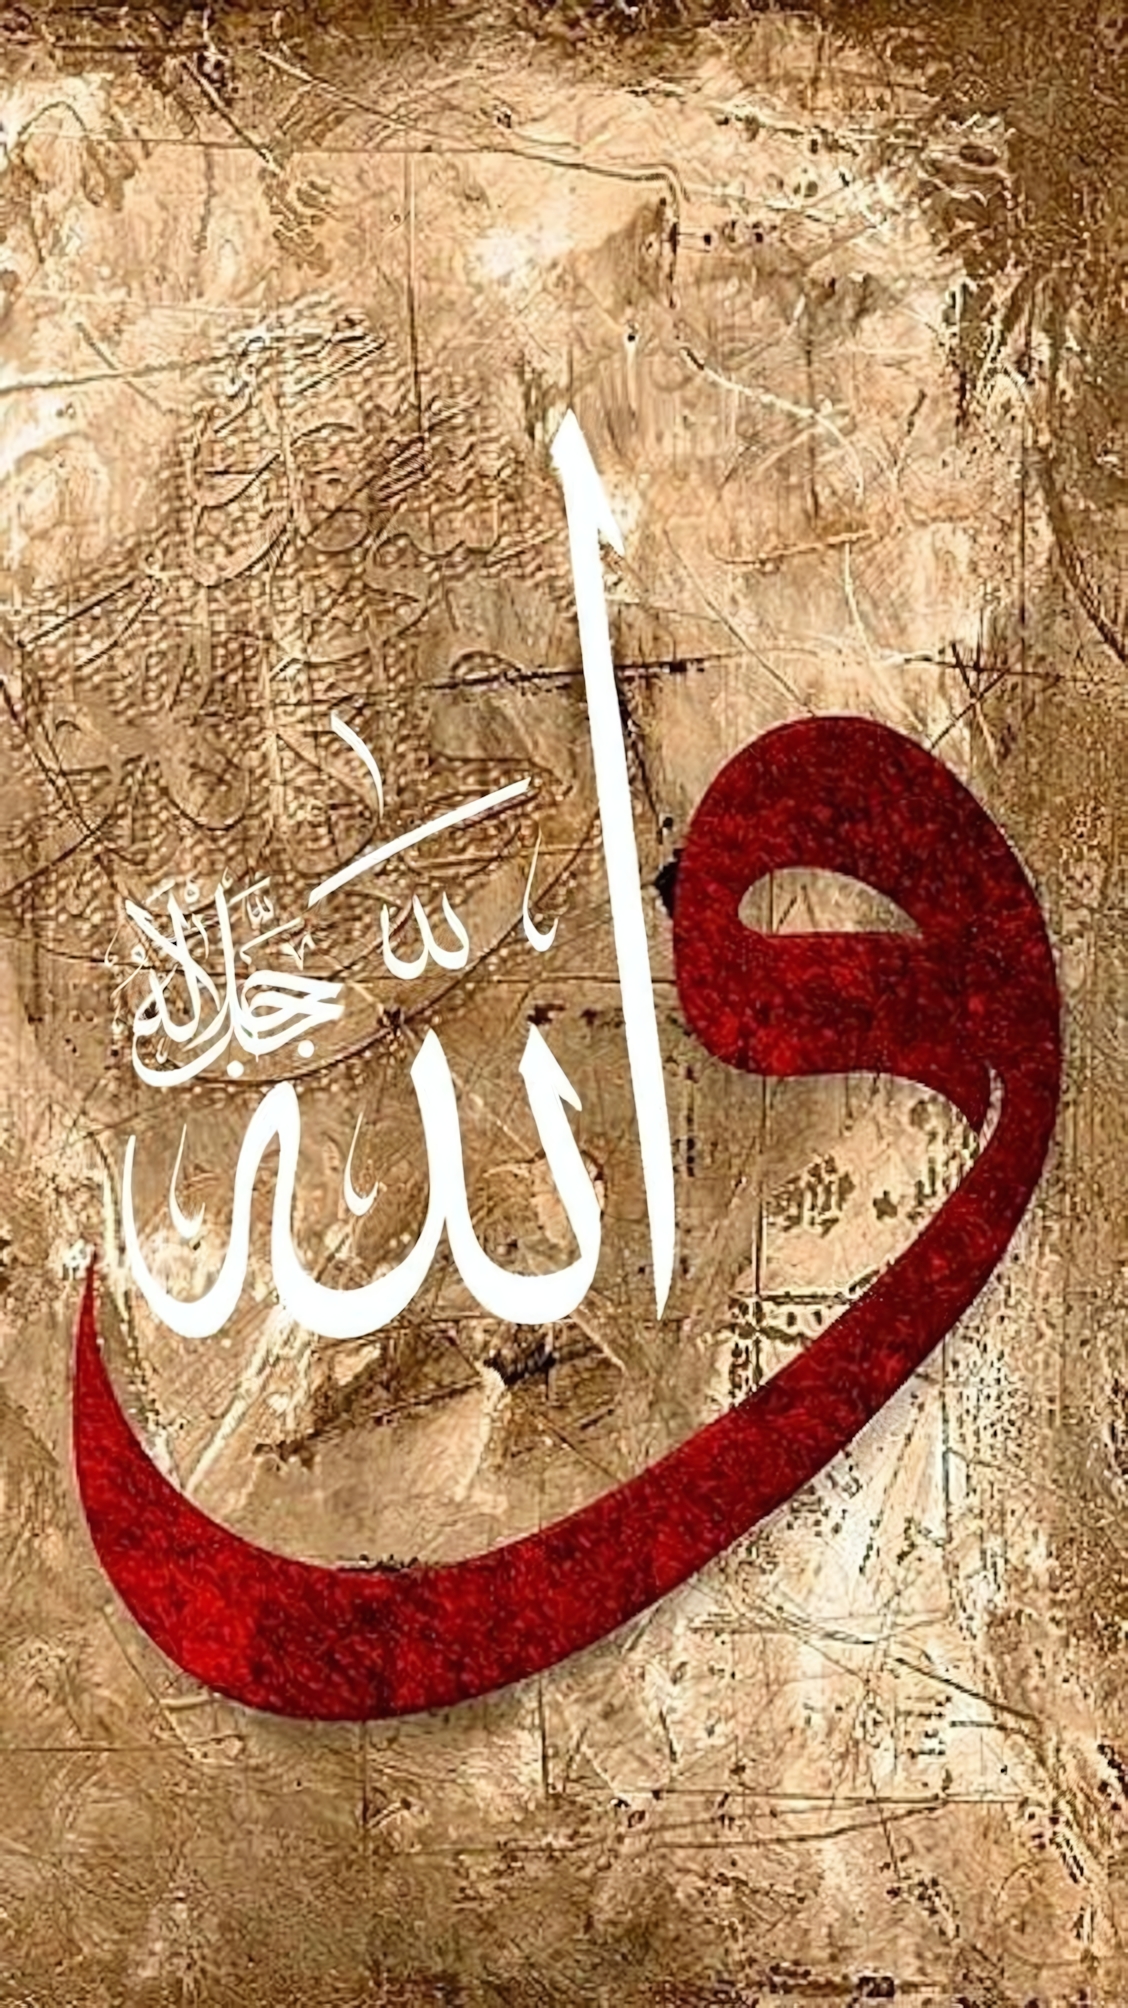 و
الله
جل جلاله